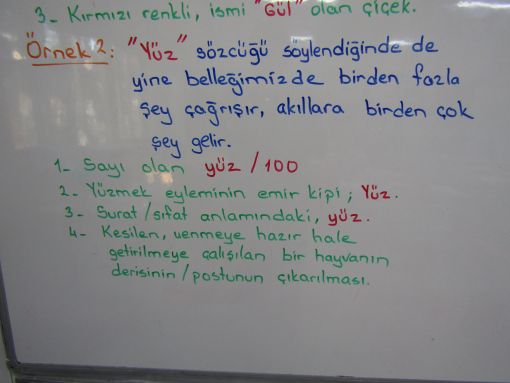 3- Kırmızı renkli, ismi "Gül" olan çiçek.
Örnek 2: "Yüz" sözcüğü söylendiğinde de
yine belleğimizde birden fazla
şey çağrışır, akıllara birden çok
şey gelir.
1- Sayı olan yüz / 100
2- Yüzmek eyleminin emir kipi; Yüz.
3- Surat / sıfat anlamındaki, yüz.
4- Kesilen, yenmeye hazır hale
getirilmeye çalışılan bir hayvanın
derisinin / postunun çıkarılması.